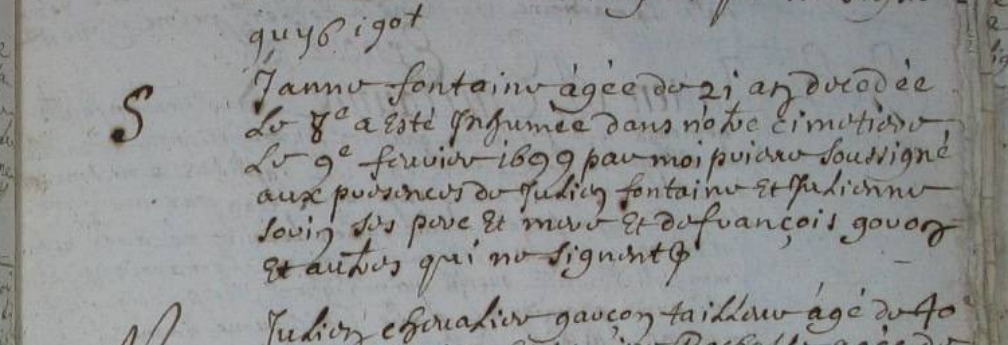 S
Janne fontaine àgée de 21 an decedée
Le 8e a Esté Jnhumée dans nôtre cimetiere
Le 9e fevrier 1699 par moi prieur soussigné
aux presences de Julien fontaine Et Julienne
sorin ses pere Et mere Et de françois govon
Et autres qui ne signent
Julien chevalier garçon tailleur àgé de 40